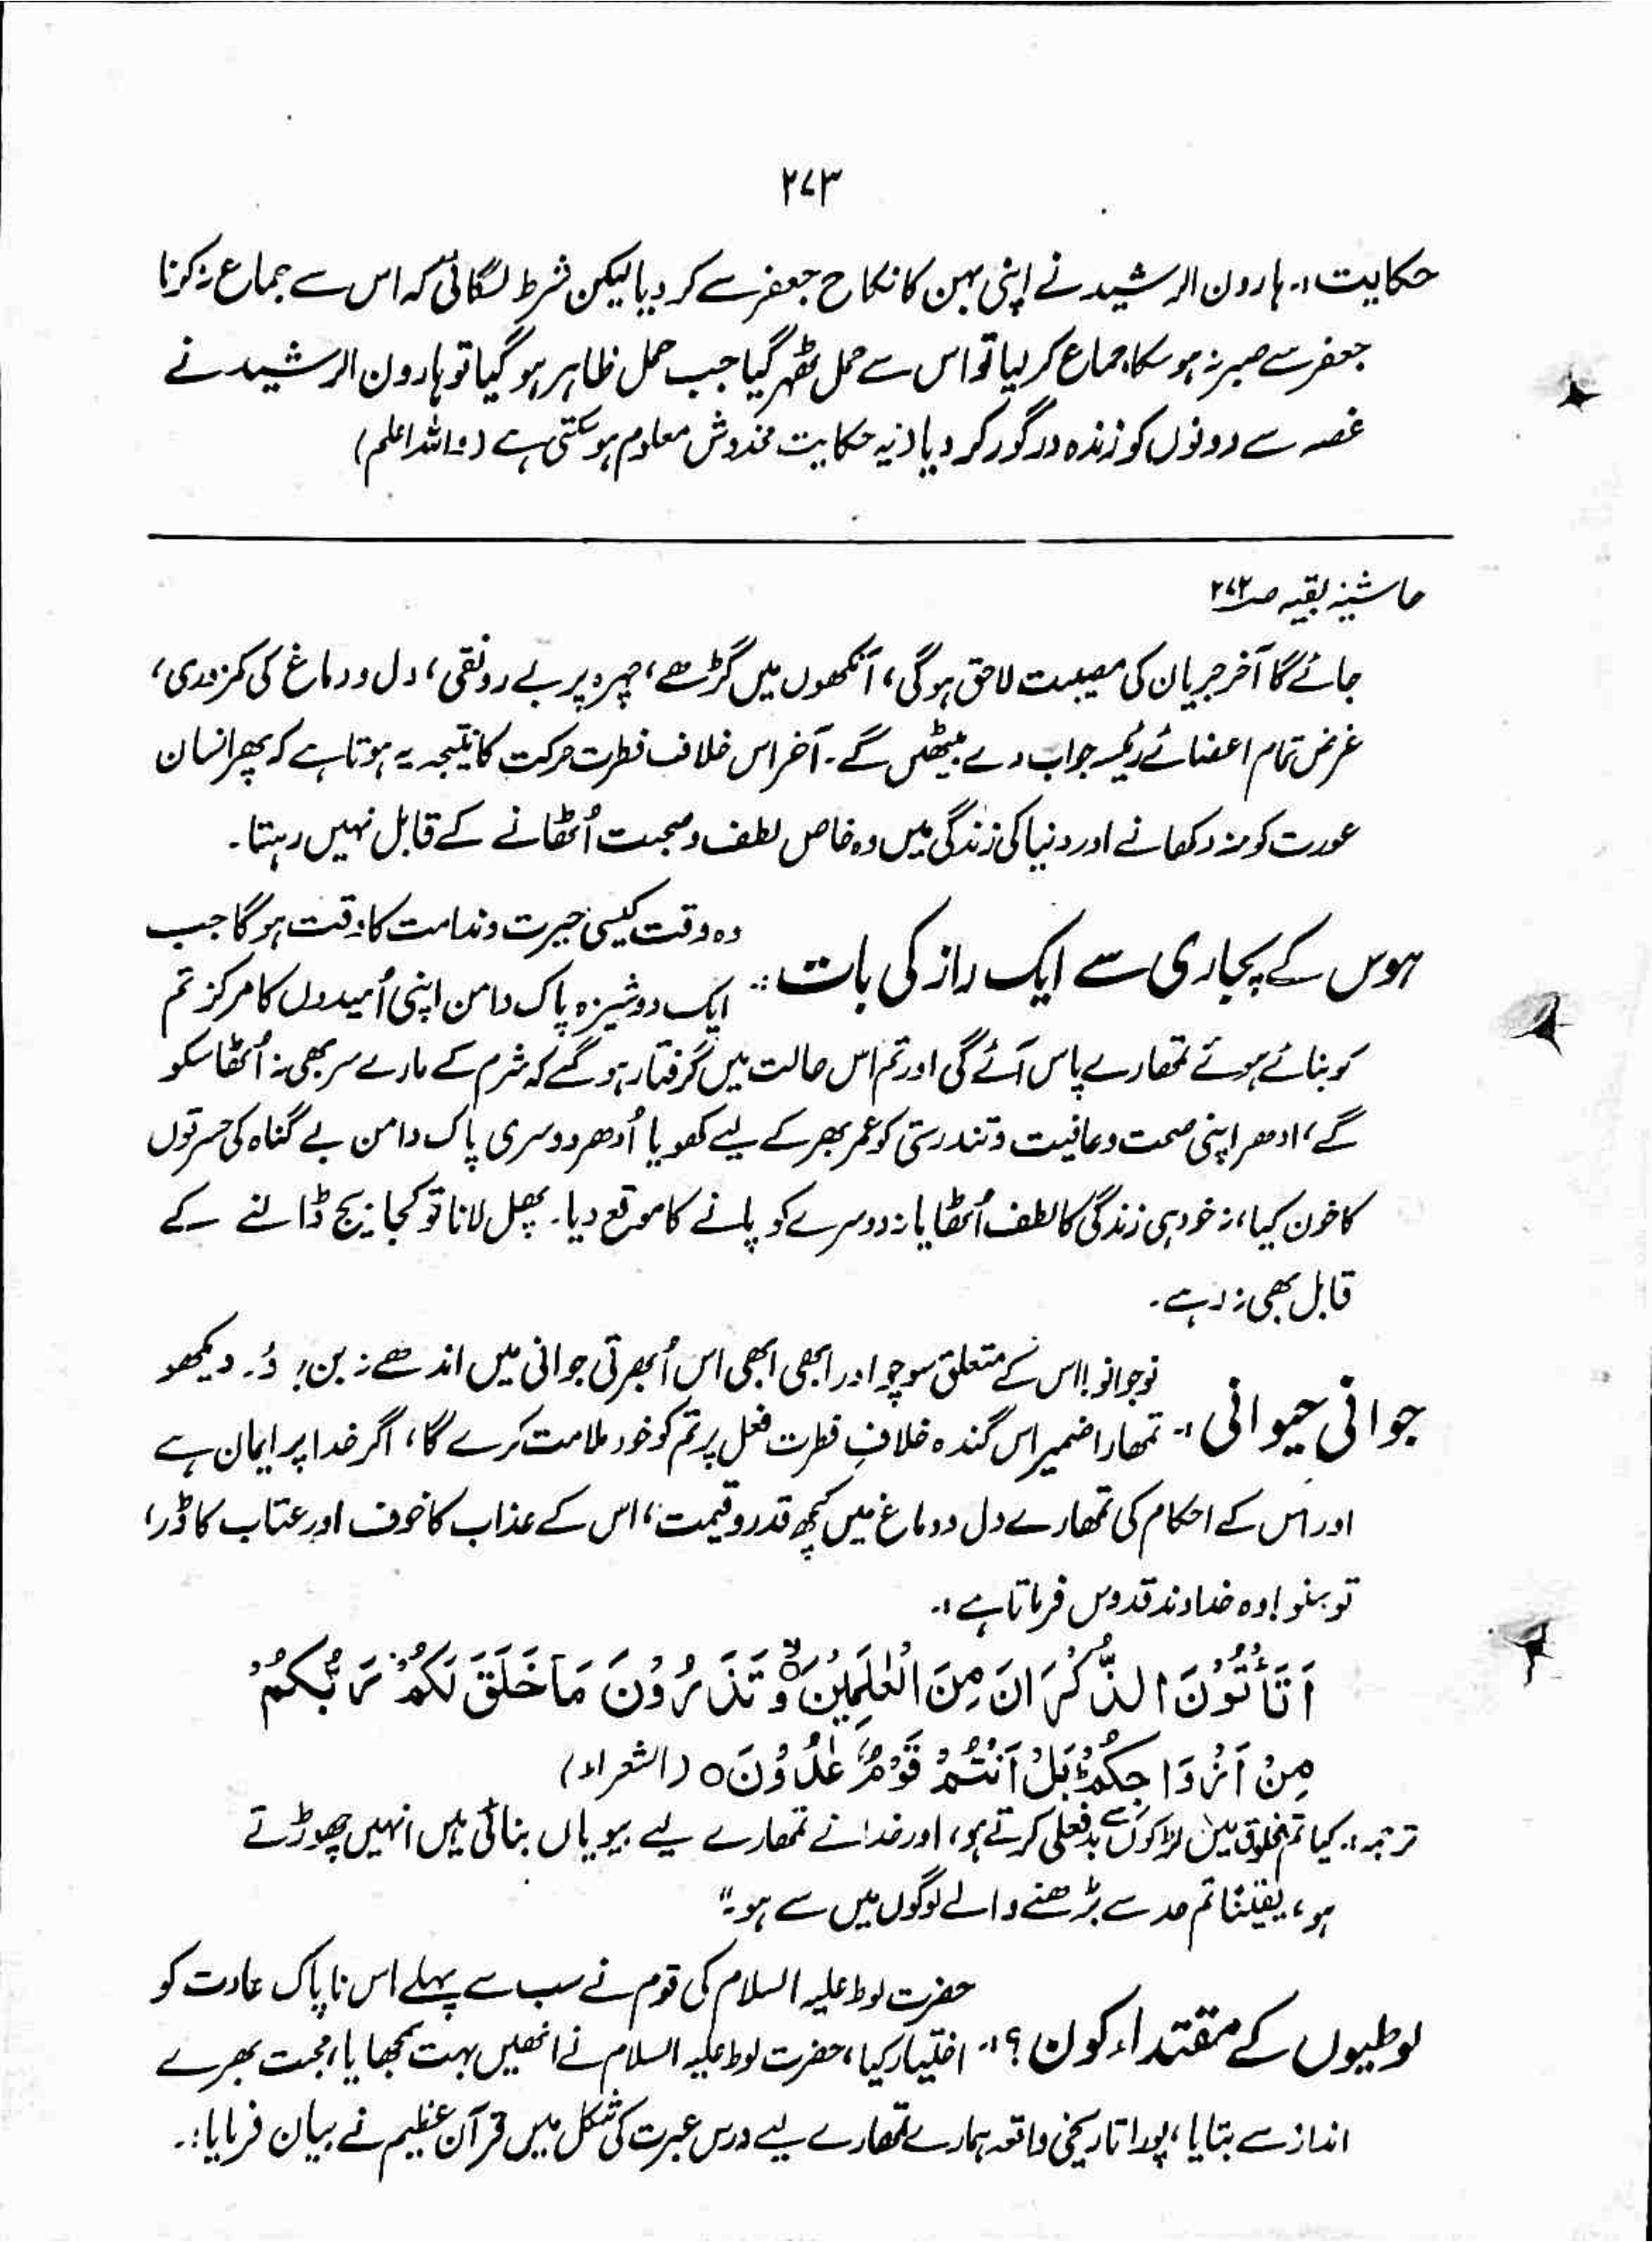 ۲۷۳
حکایت:۔ ہارون الرشید نے اپنی بہن کا نکاح جعفر سے کر دیا لیکن شرط لگائی کہ اس سے جماع نہ کرنا
جعفر سے صبر نہ ہو سکا، جماع کر لیا تو اس سے حمل ٹھہر گیا جب حمل ظاہر ہو گیا تو ہارون الرشید نے
غصہ سے دونوں کو زندہ درگور کر دیا (یہ حکایت مخدوش معلوم ہو سکتی ہے (واللہ اعلم)
حاشیہ بقیہ صـ۲۷۲
جائے گا آخر جریان کی مصیبت لاحق ہوگی، آنکھوں میں گڑھے، چہرہ پر بے رونقی، دل و دماغ کی کمزوری،
غرض تمام اعضائے رئیسہ جواب دے بیٹھیں گے۔ آخر اس خلاف فطرت حرکت کا نتیجہ یہ ہوتا ہے کہ پھر انسان
عورت کو منہ دکھانے اور دنیا کی زندگی میں وہ خاص لطف و محبت اُٹھانے کے قابل نہیں رہتا۔
ہوس کے پجاری سے ایک راز کی بات:۔ وہ وقت کیسی حیرت و ندامت کا وقت ہوگا جب
ایک دوشیزہ پاک دامن اپنی اُمیدوں کا مرکز تم
کو بنائے ہوئے تمھارے پاس آئے گی اور تم اس حالت میں گرفتار ہو گے کہ شرم کے مارے سر بھی نہ اُٹھا سکو
گے، ادھر اپنی صحت و عافیت و تندرستی کو عمر بھر کے لیے کھویا اُدھر دوسری پاک دامن بے گناہ کی حسرتوں
کا خون کیا، نہ خود ہی زندگی کا لطف اُٹھایا نہ دوسرے کو پانے کا موقع دیا۔ پھل لانا تو کجا بیج ڈالنے کے
قابل بھی نہ رہے۔
جوانی حیوانی:۔ نوجوانو! اس کے متعلق سوچو اور ابھی ابھی اس اُبھرتی جوانی میں اندھے نہ بن جاؤ۔ دیکھو
تمھارا ضمیر اس گندہ خلافِ فطرت فعل پر تم کو خود ملامت کرے گا، اگر خدا پر ایمان ہے
اور اس کے احکام کی تمھارے دل و دماغ میں کچھ قدر و قیمت، اس کے عذاب کا خوف اور عتاب کا ڈر،
تو سنو! وہ خداوند قدوس فرماتا ہے:۔
اَتَاْتُوْنَ الذُّكْرَانَ مِنَ الْعٰلَمِيْنَ ۙ وَتَذَرُوْنَ مَا خَلَقَ لَكُمْ رَبُّكُمْ
مِنْ اَزْوَاجِكُمْ ؕ بَلْ اَنْتُمْ قَوْمٌ عٰدُوْنَ ○ (الشعراء)
ترجمہ:۔ کیا تم مخلوق میں لڑکوں سے بدفعلی کرتے ہو، اور خدا نے تمھارے لیے بیویاں بنائی ہیں انہیں چھوڑتے
ہو، یقیناً تم حد سے بڑھنے والے لوگوں میں سے ہو۔"
لوطیوں کے مقتداء کون؟:۔ حضرت لوط علیہ السلام کی قوم نے سب سے پہلے اس ناپاک عادت کو
اختیار کیا، حضرت لوط علیہ السلام نے انھیں بہت سمجھایا، محبت بھرے
انداز سے بتایا، پورا تاریخی واقعہ ہمارے تمھارے لیے درس عبرت کی شکل میں قرآن عظیم نے بیان فرمایا:۔